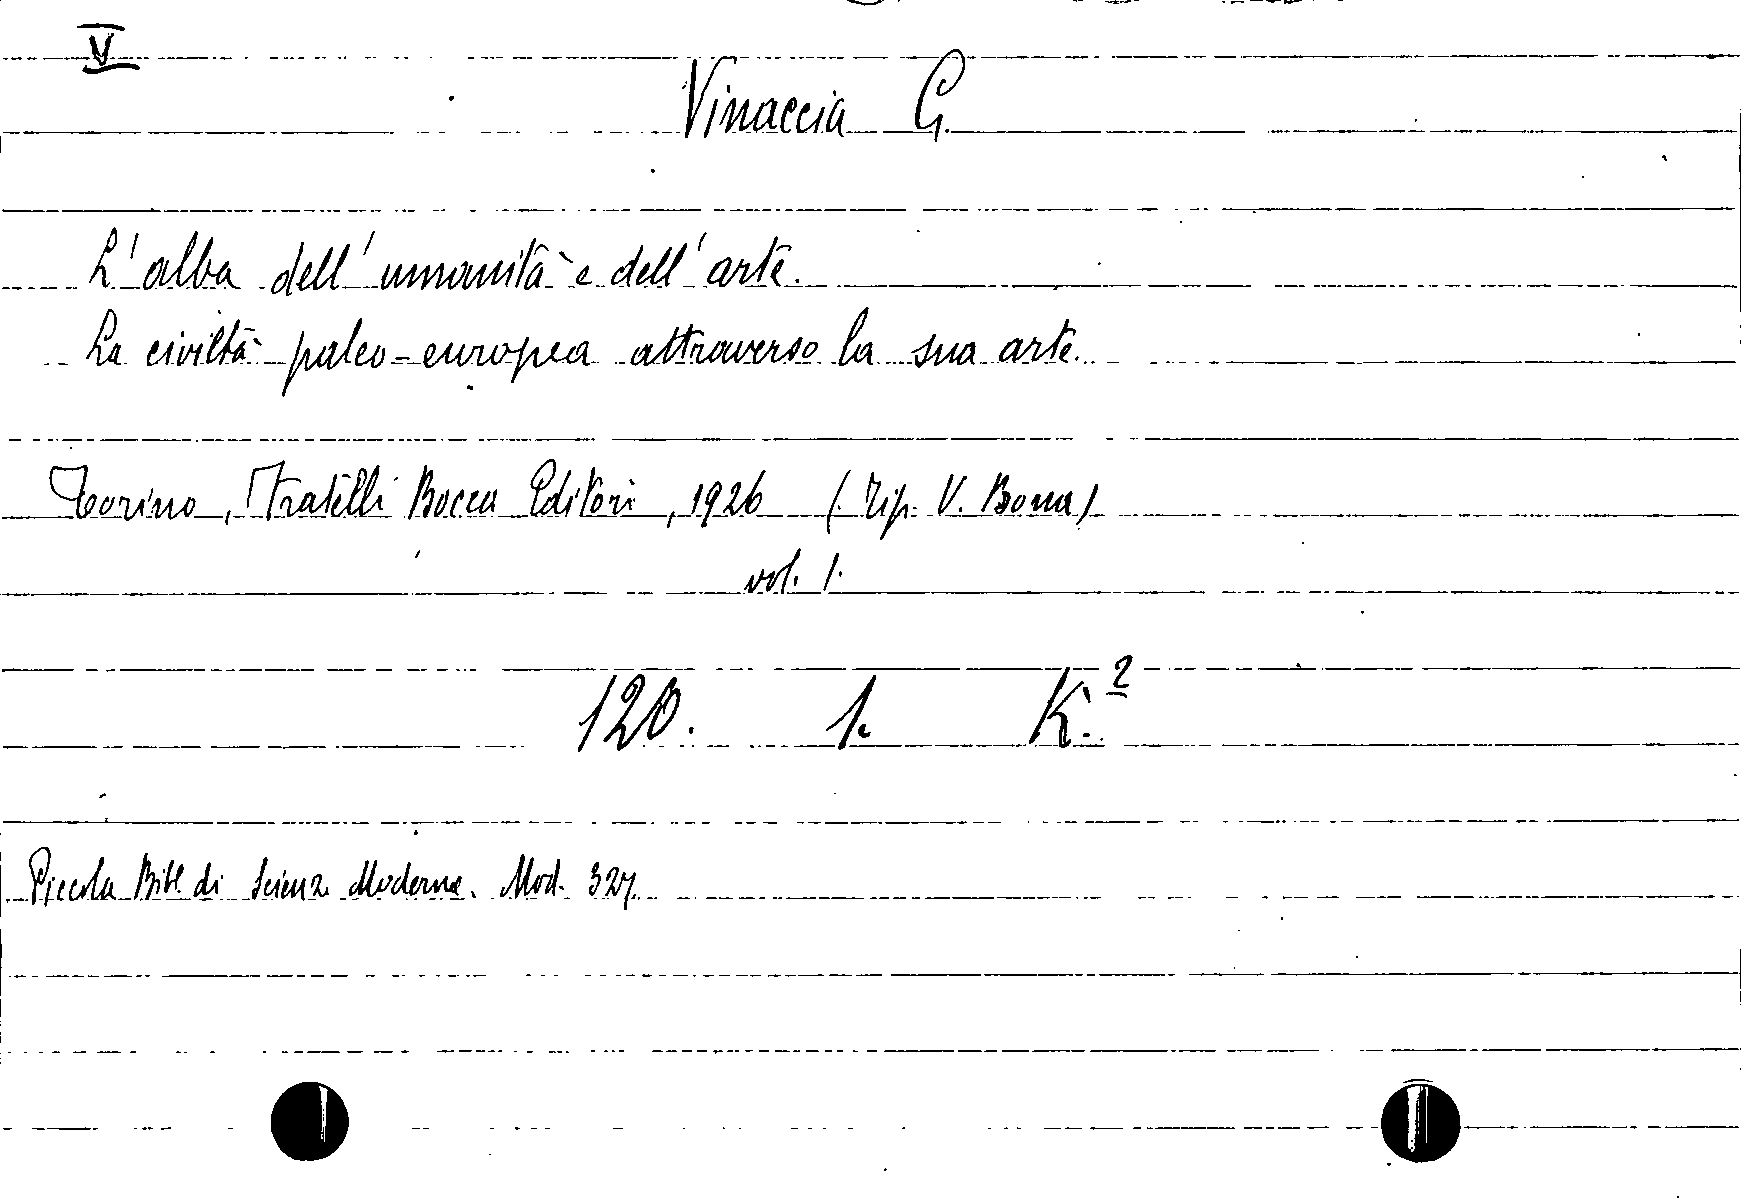 V
Vinaccia G.
L'alba dell'umanità e dell'arte.
La civiltà paleo-europea attraverso la sua arte.
Torino, Fratelli Bocca Editori, 1926 (Tip. V. Bona)
vol. 1.
120. 1. K.²
Piccola Bibl. di Scienz. Moderne. Mod. 327.